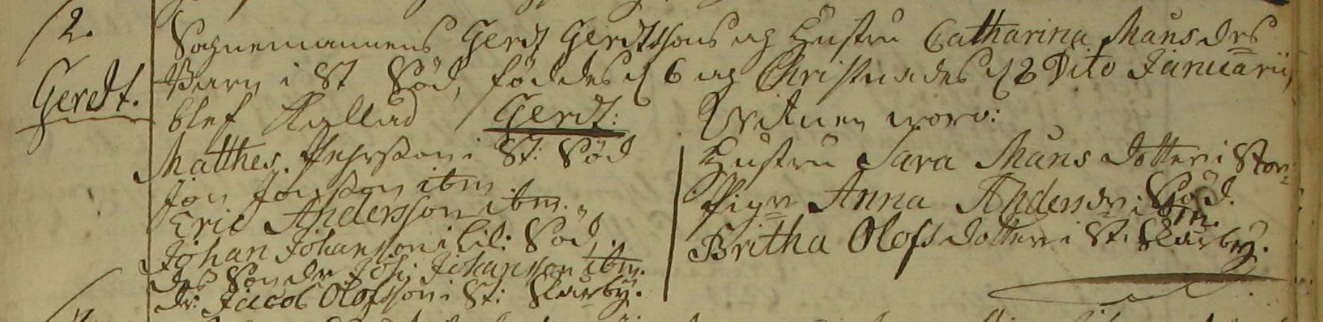 2.
Gerdt.
Sognemannens Gerdt Gerdtssons og Hustru Catharina Månsdrs
Barn i St Söd, föddes d 6 og Christnades d 8 Dito Januarii,
blef Kallad Gerdt: Witnen woro:
Matthes Pehrsson i St: Söd
Jon Jonsson ibm
Eric Andersson ibm.
Johan Johansson i Lil: Söd.
Johansson ibm.
dr: Jacob Olofsson i St: Skarby.
Hustru Sara Måns dotter i Stor
Pig: Anna Andersdr i Söd.
ibm.
Britha Olofs dotter i St: Skarby.